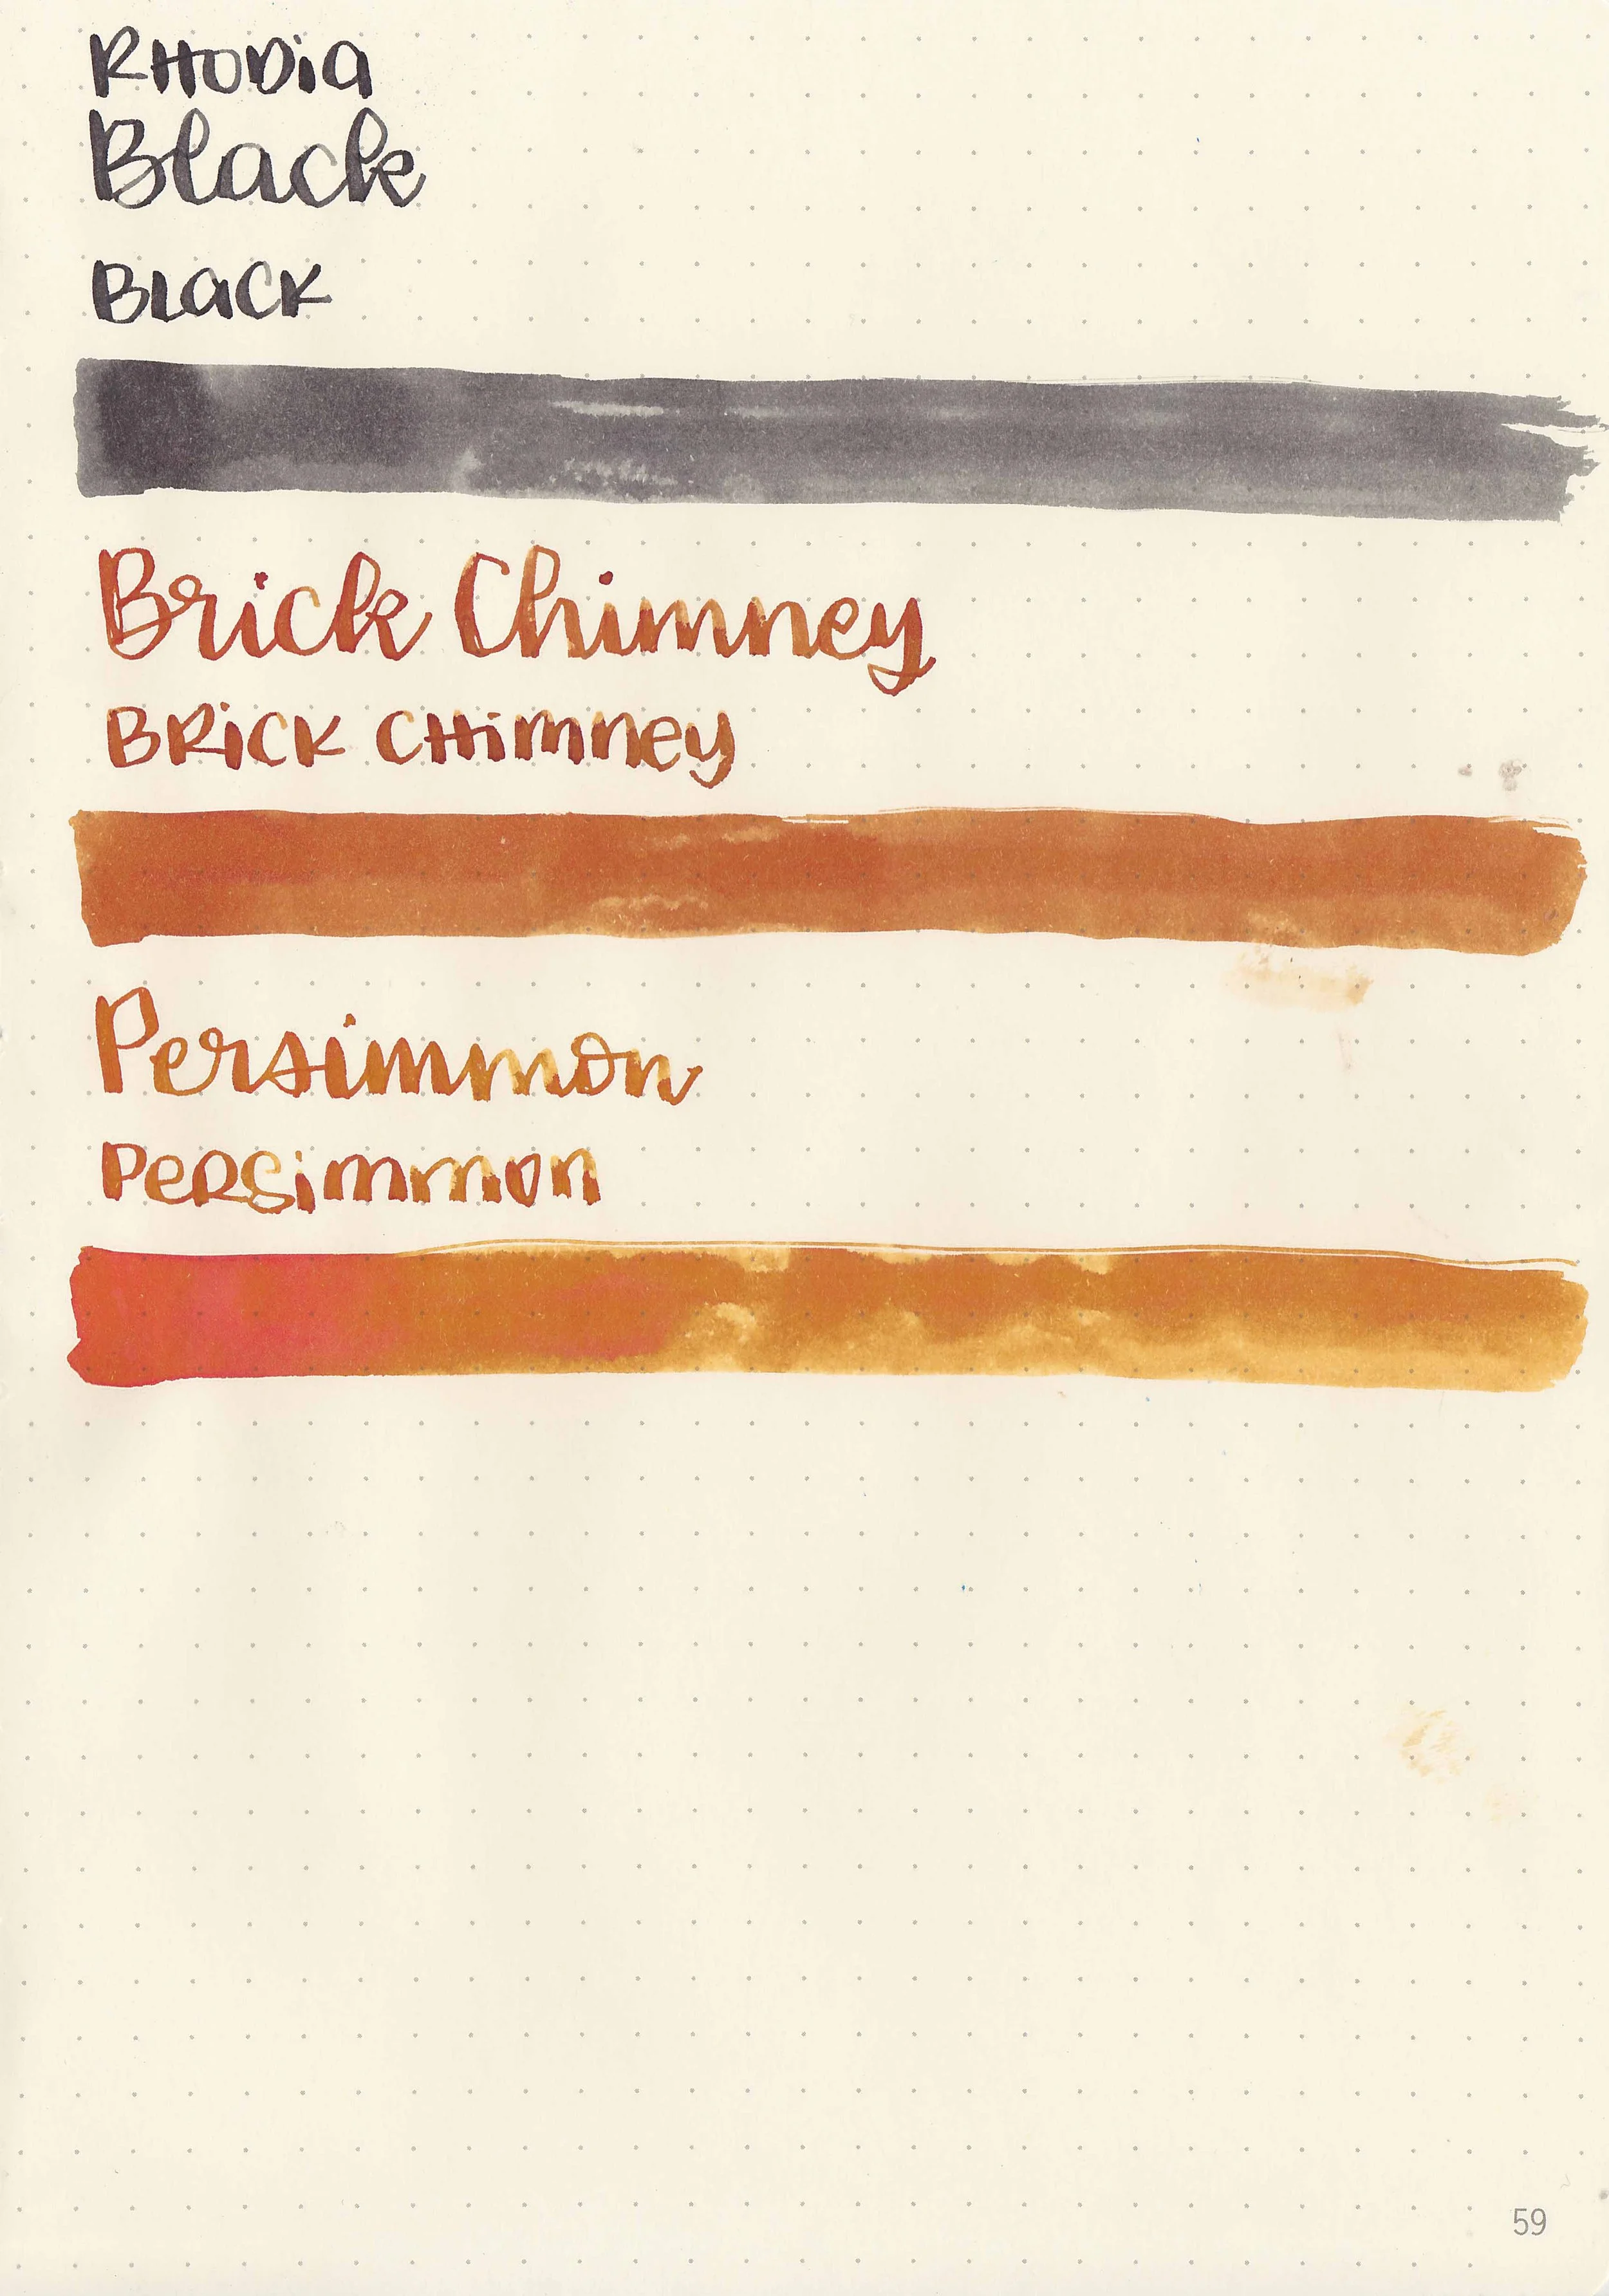 RHODia
Black
BLaCK
Brick Chimney
BRiCK CHimney
Persimmon
PeRSimmon
59